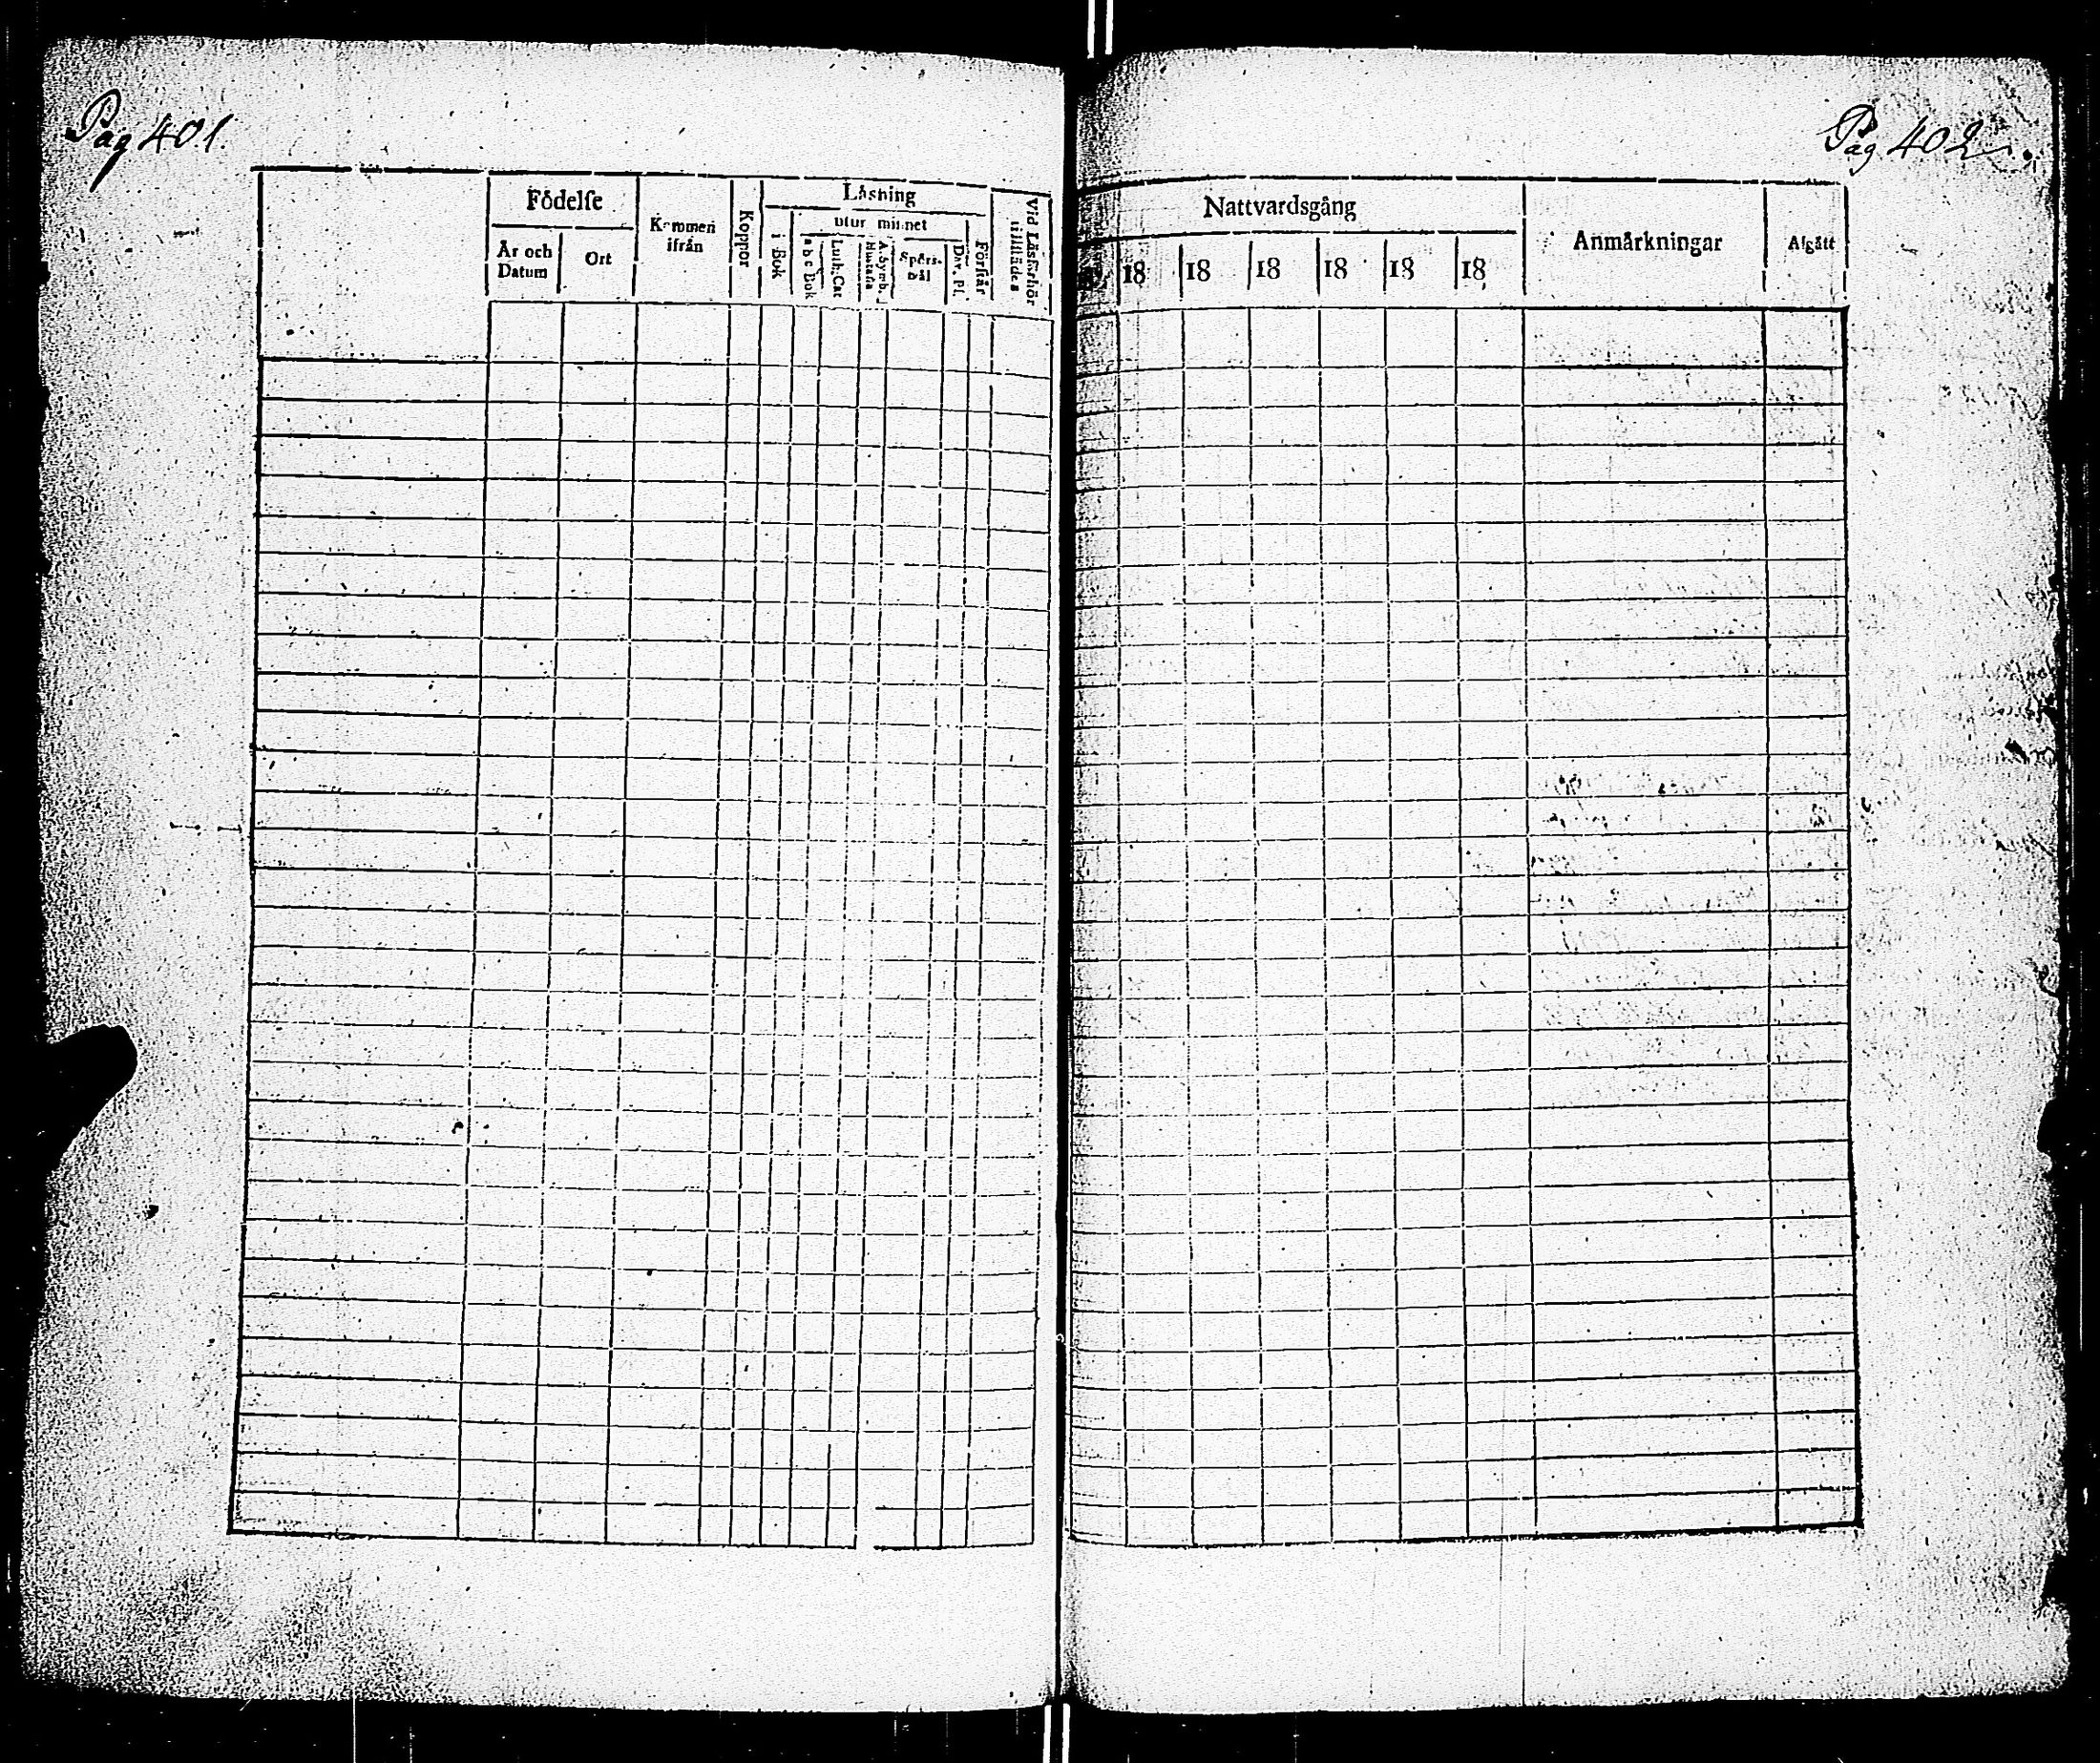 Pag 401.
Födelse
År och Datum
Ort
Kommen ifrån
Koppor
Läsning
i Bok
utur minnet
a b c Bok
Luth: Cat
A. Symb. Hustafla
Spörs-mål
Dav. Ps.
Förstår
Vid Läsförhör tillstädes
Pag 402
Nattvardsgång
18 18 18 18 18 18
Anmärkningar
Afgått